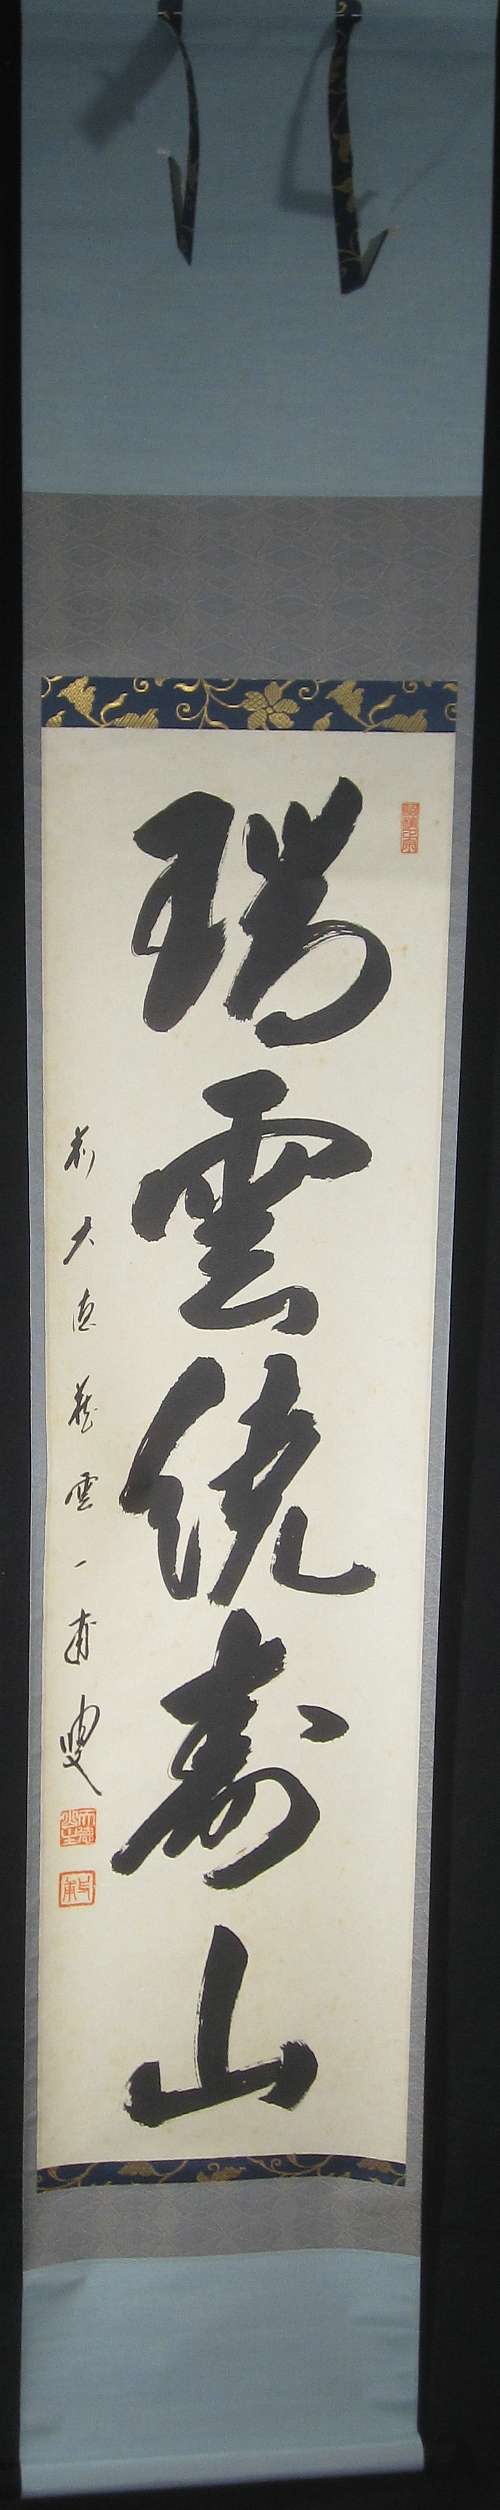 瑞雲繞壽山
前大徳藏雲一甫叟